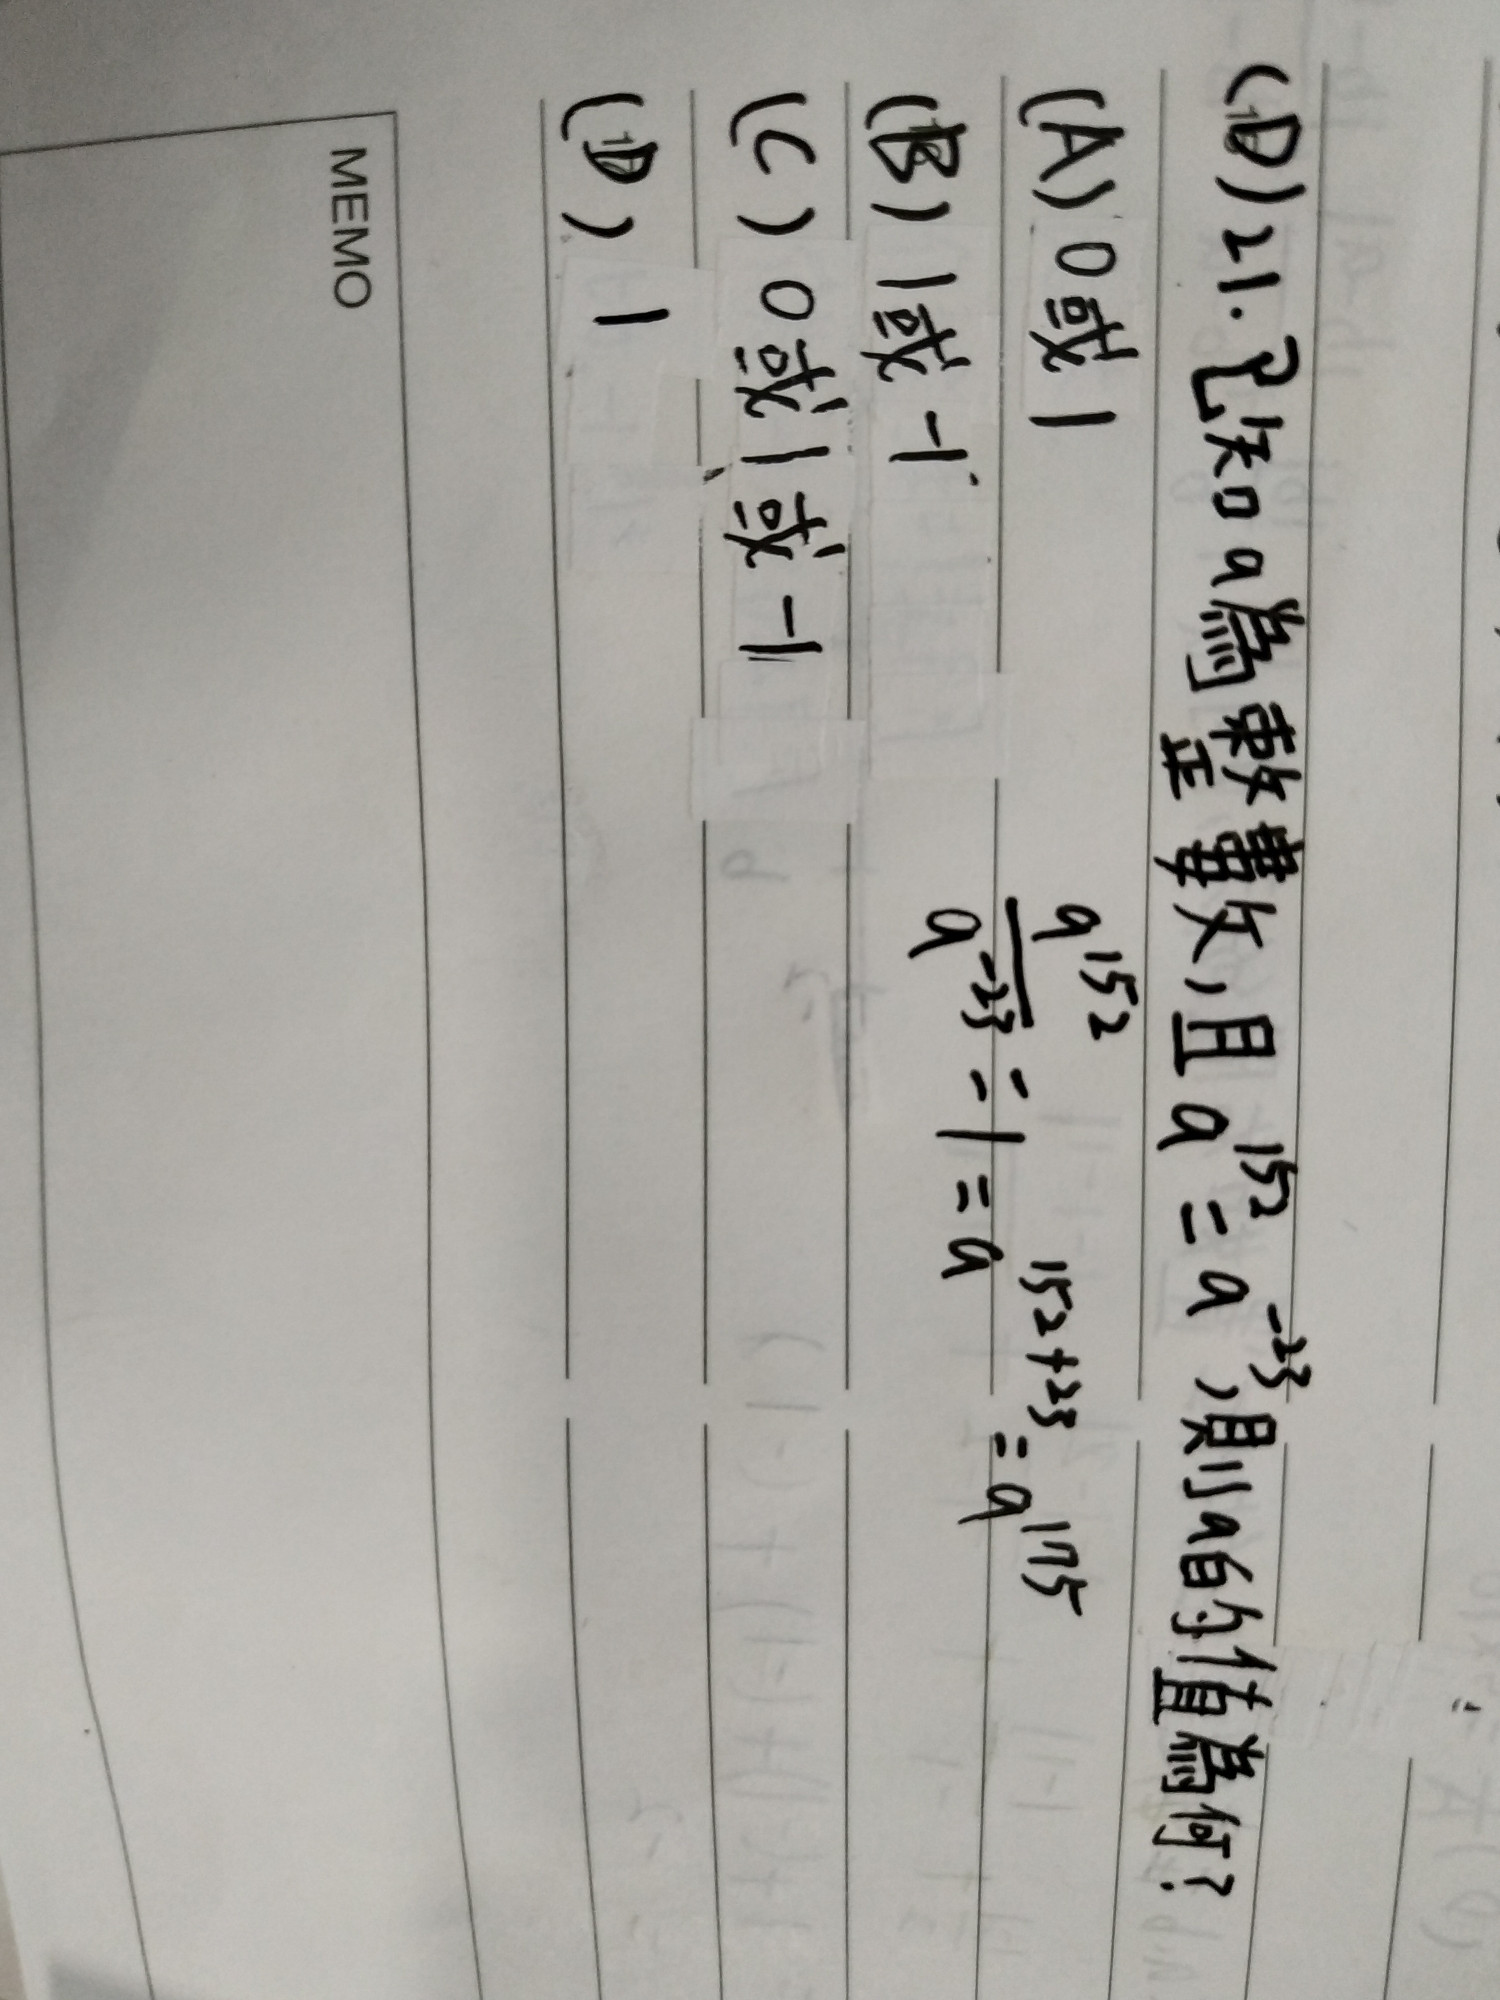 (D)21.已知a為整數,且a¹⁵²=a⁻²³,則a的值為何?
(A)0或1
(B)1或-1
(C)0或1或-1
(D)1
a¹⁵²/a⁻²³=1=a¹⁵²⁺²³=a¹⁷⁵
MEMO